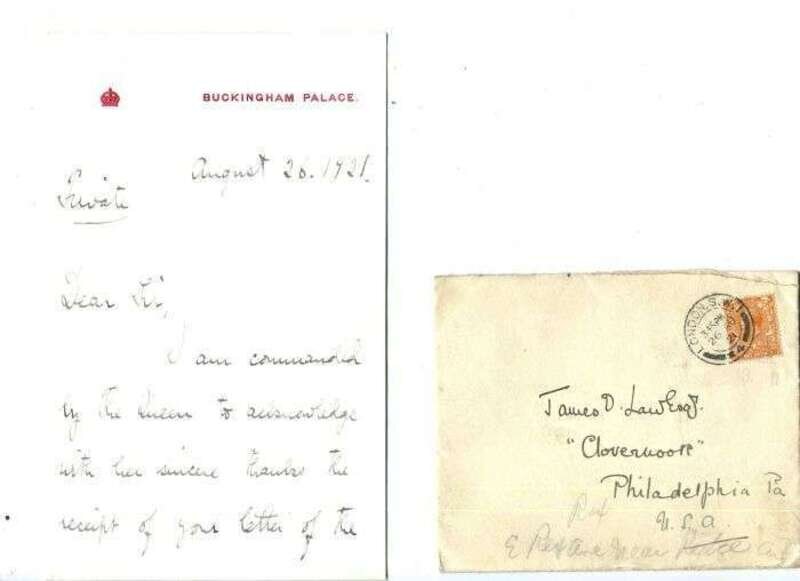 BUCKINGHAM PALACE.
August 26. 1921.
Private
Dear Sir,
I am commanded
by the Queen to acknowledge
with her sincere thanks the
receipt of your letter of the
LONDON. S.W.1
26
James D. Law Esqr.
"Clovernook"
Philadelphia Pa
U.S.A.
Near